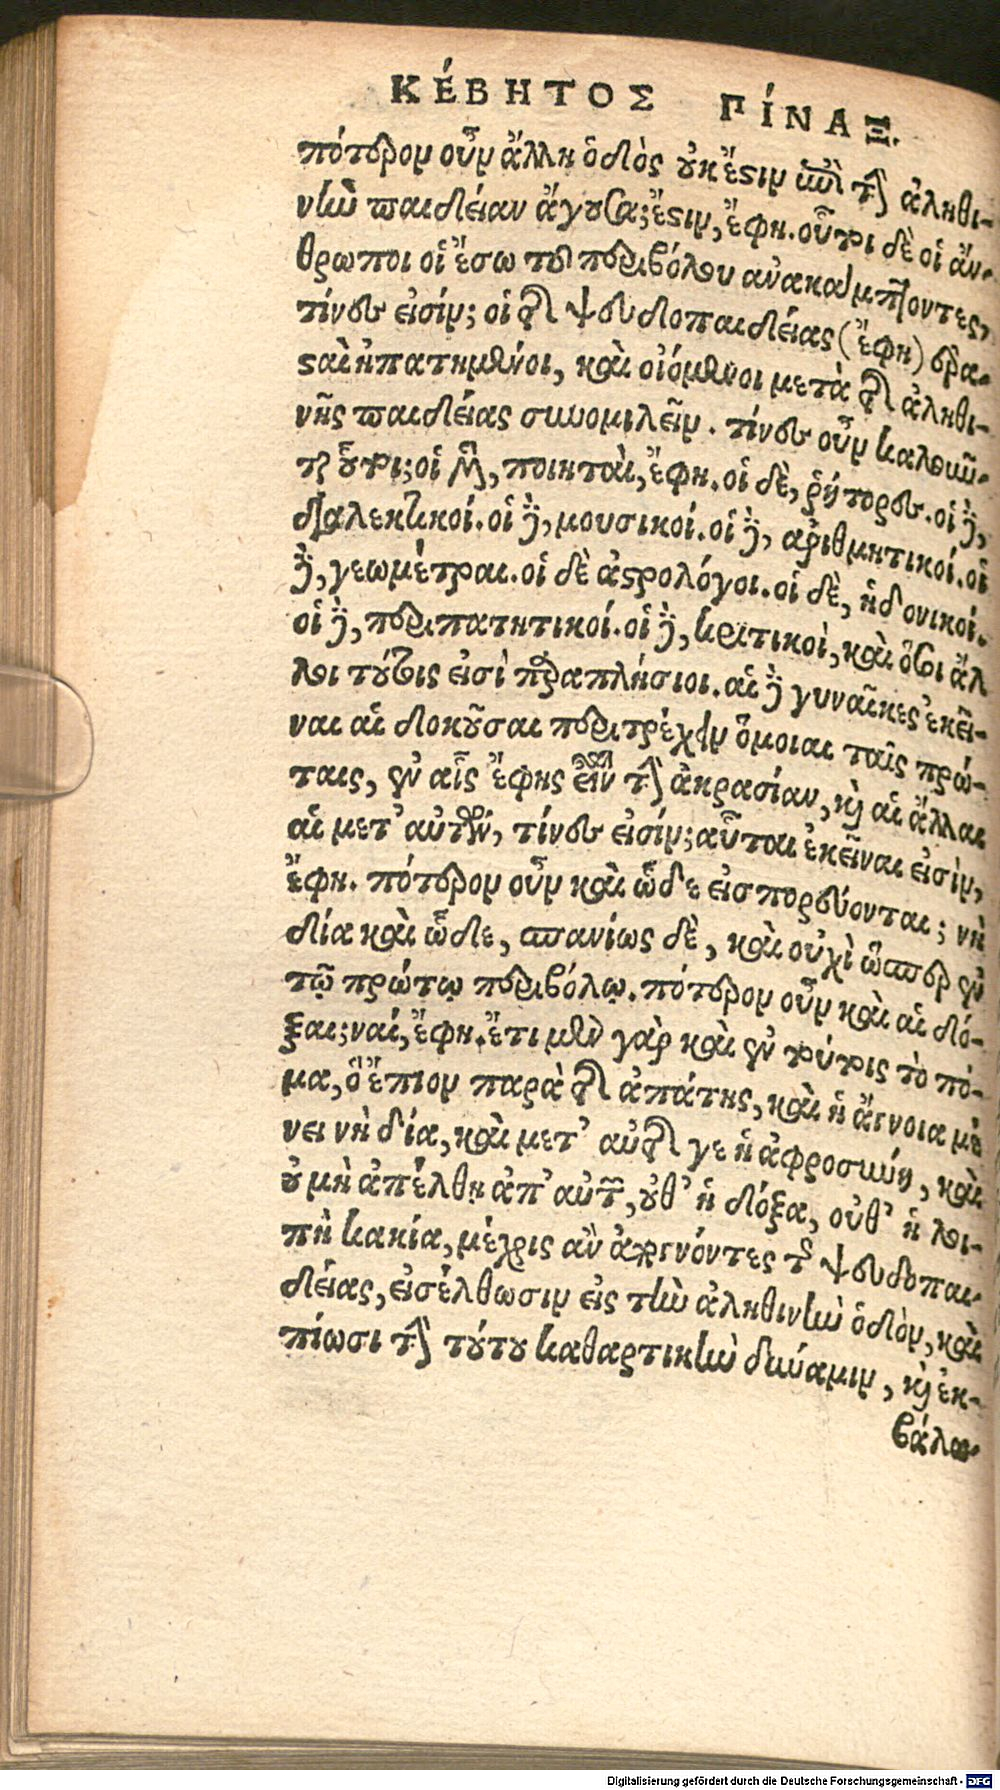 ΚΈΒΗΤΟΣ ΠΊΝΑΞ.
πότερον οὖν ἄλλη ὁδὸς οὐκ ἔστιν ἐπὶ τὴν ἀληθι-
νὴν παιδείαν ἄγουσα; ἔστιν, ἔφη. οὗτοι δὲ οἱ ἄν-
θρωποι οἱ ἔσω τοῦ περιβόλου ἀνακάμπτοντες,
τίνες εἰσίν; οἱ τῆς ψευδοπαιδείας (ἔφη) ἐρα-
σταὶ ἠπατημένοι, καὶ οἰόμενοι μετὰ τῆς ἀληθι-
νῆς παιδείας συνομιλεῖν. τίνες οὖν καλοῦν-
ται οὗτοι; οἱ μὲν, ποιηταὶ, ἔφη. οἱ δὲ, ῥήτορες. οἱ δὲ,
διαλεκτικοί. οἱ δὲ, μουσικοί. οἱ δὲ, ἀριθμητικοί. οἱ
δὲ, γεωμέτραι. οἱ δὲ ἀστρολόγοι. οἱ δὲ, ἡδονικοί.
οἱ δὲ, περιπατητικοί. οἱ δὲ, κριτικοὶ, καὶ ὅσοι ἄλ
λοι τούτοις εἰσὶ παραπλήσιοι. αἱ δὲ γυναῖκες ἐκεῖ-
ναι αἱ δοκοῦσαι περιτρέχειν ὅμοιαι ταῖς πρώ-
ταις, ἐν αἷς ἔφης εἶναι τὴν ἀκρασίαν, καὶ αἱ ἄλλαι
αἱ μετ' αὐτῶν, τίνες εἰσίν; αὗται ἐκεῖναι εἰσὶν,
ἔφη. πότερον οὖν καὶ ὧδε εἰσπορεύονται; νὴ
δία καὶ ὧδε, σπανίως δὲ, καὶ οὐχὶ ὥσπερ ἐν
τῷ πρώτῳ περιβόλῳ. πότερον οὖν καὶ αἱ δό-
ξαι; ναί, ἔφη. ἔτι μὲν γὰρ καὶ ἐν τούτοις τὸ πό-
μα, ὃ ἔπιον παρὰ τῆς ἀπάτης, καὶ ἡ ἄγνοια μέ
νει νὴ δία, καὶ μετ' αὐτῆς γε ἡ ἀφροσύνη, καὶ
οὐ μὴ ἀπέλθῃ ἀπ' αὐτῶν, οὐθ' ἡ δόξα, οὐθ' ἡ λοι-
πὴ κακία, μέχρις ἂν ἀπογνόντες τῆς ψευδοπαι-
δείας, εἰσέλθωσιν εἰς τὴν ἀληθινὴν ὁδὸν, καὶ
πίωσι τὴν τούτου καθαρτικὴν δύναμιν, καὶ ἐκ-
βάλω-
Digitalisierung gefördert durch die Deutsche Forschungsgemeinschaft - DFG